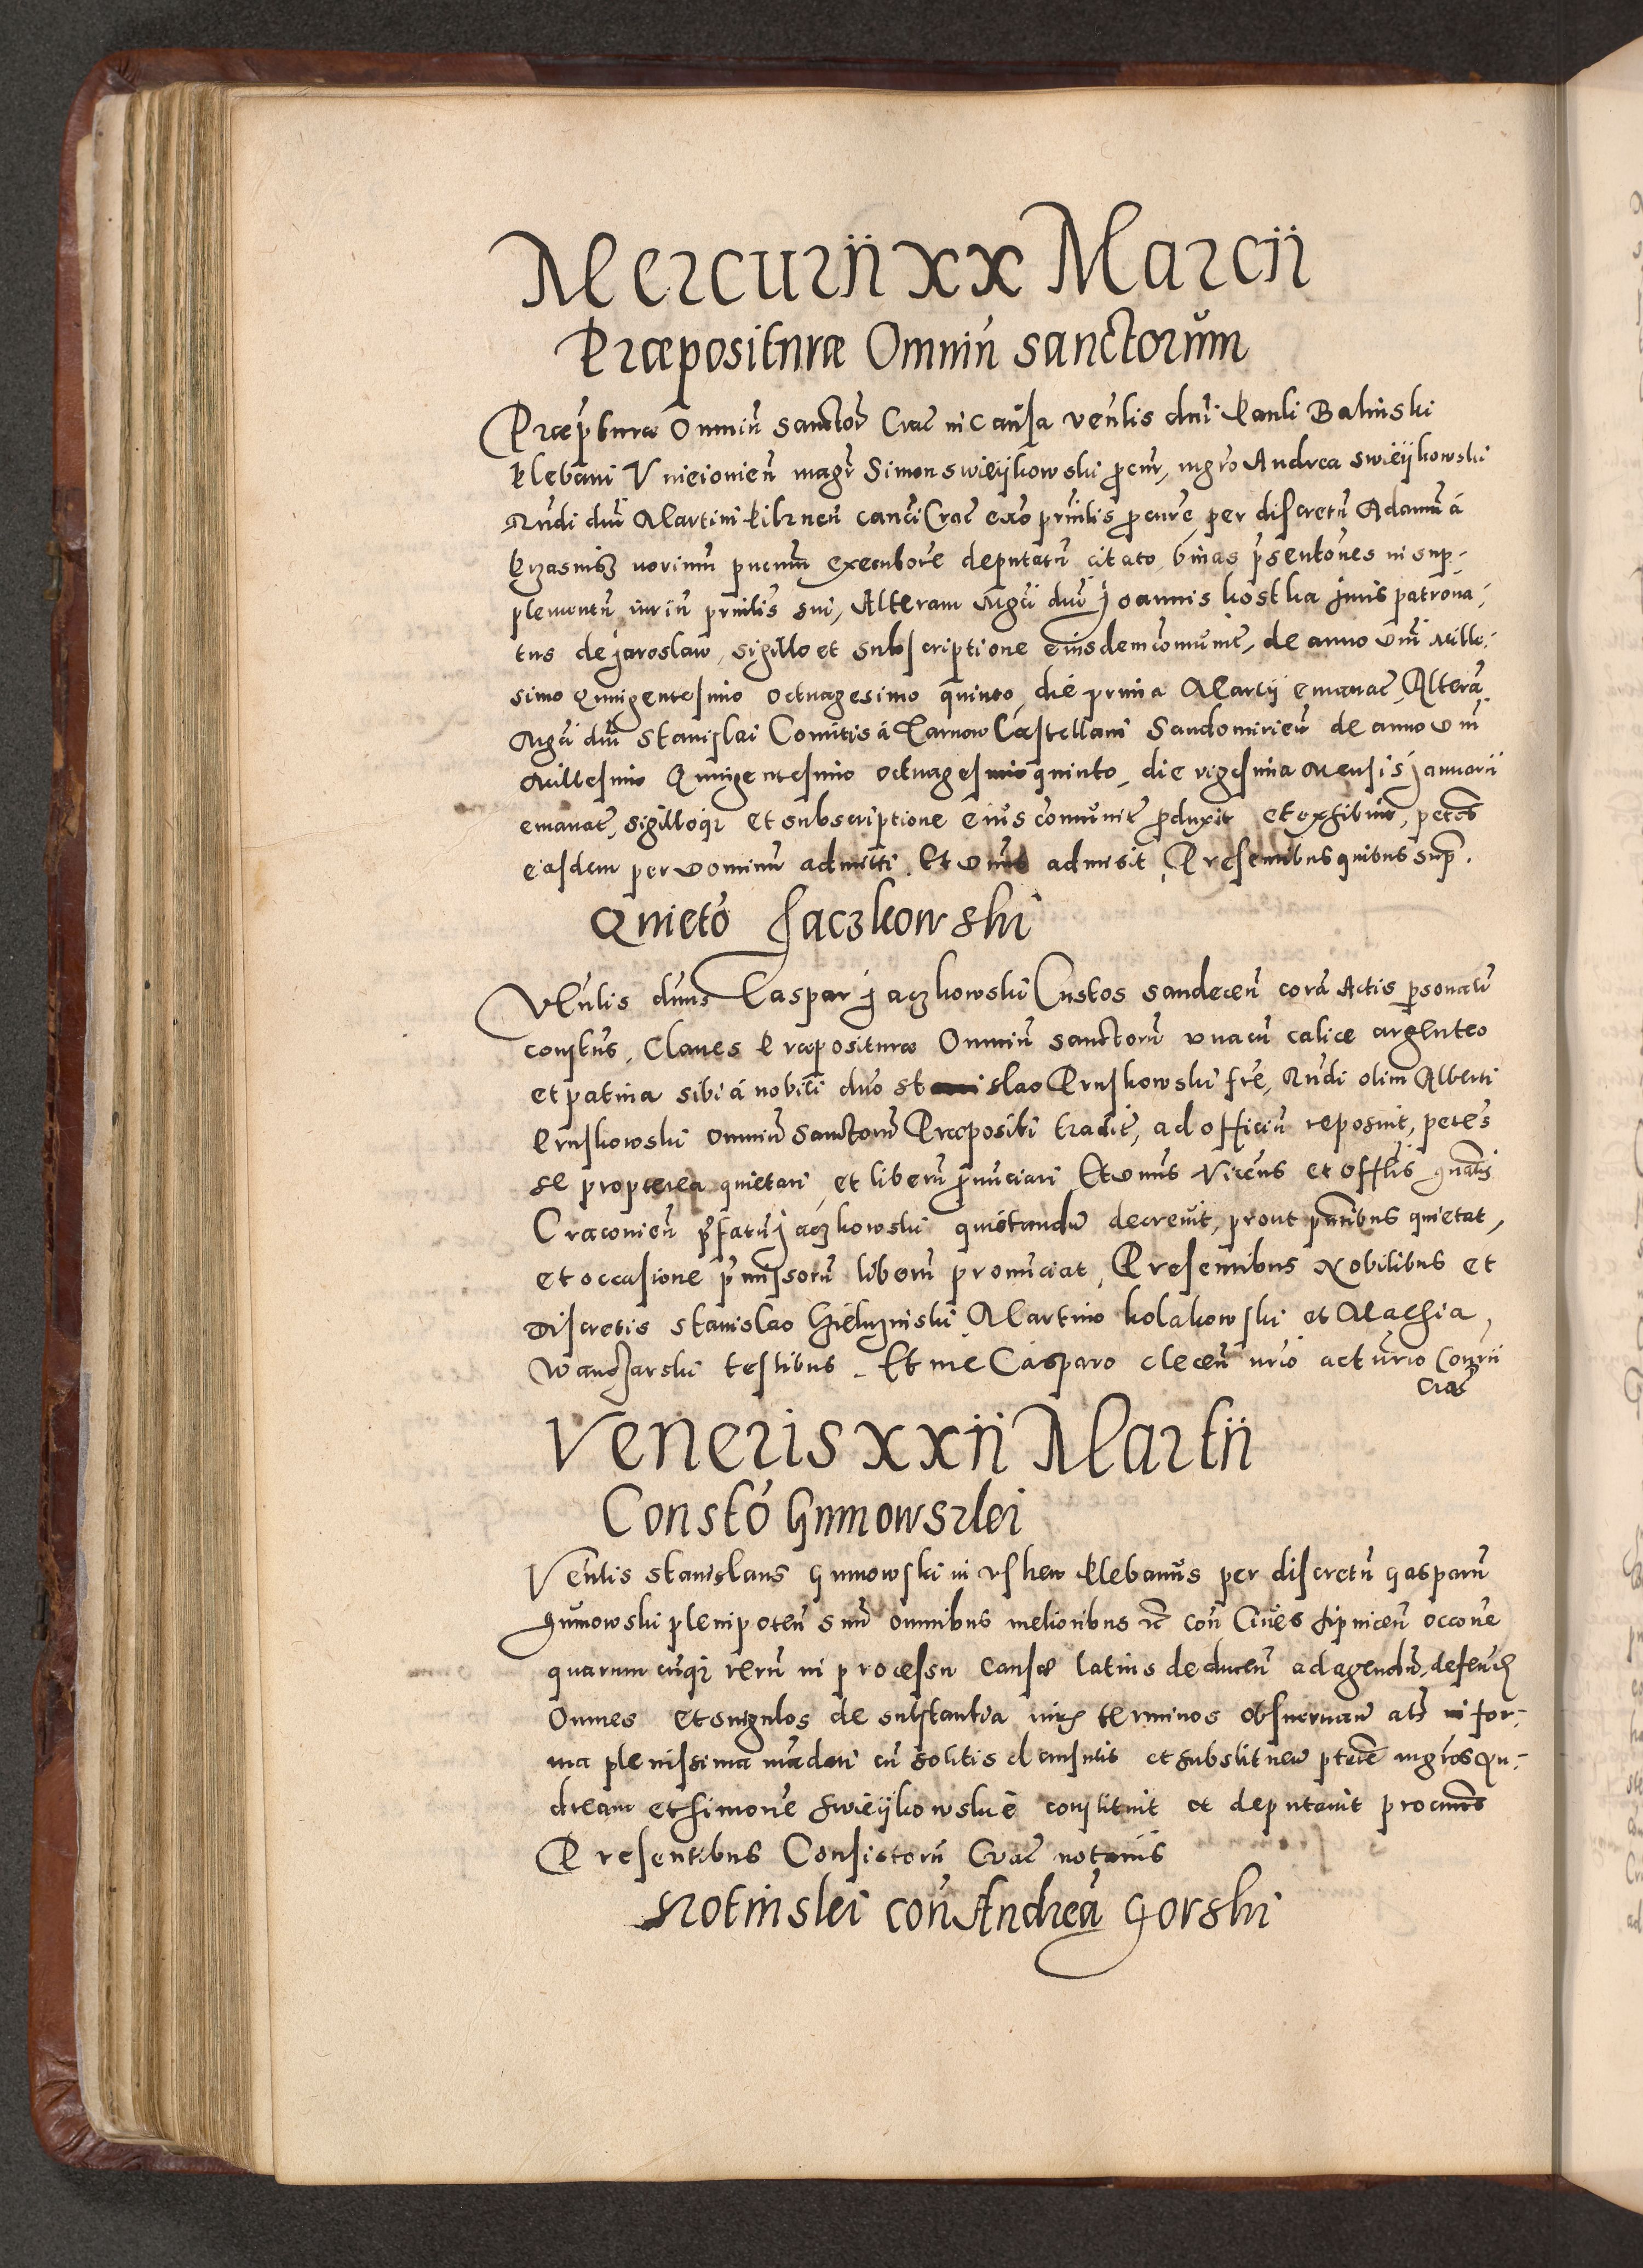 Mercurii xx Marcii
Præpositurae Omniū sanctorum
Præp̄turæ Omniū sanctor̄ Crac̄ in causa ven̄lis dn̄i Pauli Balinski
Plebāni Unieiouien̄ mag̃r Simon swieÿkowski p̄cur̄, mgr̄o Andrea swieÿkowski
Rn̄di dn̄i Martini can̄ci Crac̄ ex̄o prin̄lis p̄cur̄e, per discretū Adamū á
executorē deputatū citato, binas p̄sentōnes in sup-
plementū iuriū prin̄lis sui, Alteram Mḡci dn̄i Joannis kostka juris patrona-
tus de Jaroslaw, sigillo et subscriptione eiusdem comūnit̄, de anno Dn̄i Mille-
simo Quingentesimo octuagesimo quinto, die prima Martÿ emanat̄, Alterā
Mḡci dn̄i Stanislai Comitis á Tarnow Castellani Sandomirien̄ de anno Dn̄i
Millesimo Quingentesimo octuagesimo quinto, die vigesima Mensis Januarii
emanat̄, sigilloq̄ et subscriptione eius comūnit̄ p̄duxit et exhibuit, peteñs
easdem per Dominū admitti. Et Dn̄us admisit, Presentibus quibus sup̄.
Quietō Jaczkowski
Ven̄lis dn̄us Caspar Jaczkowski Custos sandecen̄ corā Actis p̄sonalr̄
constūs, Claues Præpositurae Omniū sanctorū unacū calice argenteo
et patina sibi á nobili dn̄o Stanislao Pruskowski fr̄e, Rn̄di olim Alberti
Pruskowski omniū Sanctorū Præpositi tradit̄, ad officiū reposuit, peteñs
se propterea quietari, et liberū p̄nūciari, Et Dn̄us Vicen̄s et offl̄is gn̄alis
Cracouien̄ p̄fatū Jaczkowski quietandū decreuit, prout p̄ntibus quietat,
et occasione p̄missorū liberū pronūciat, Presentibus Nobilibus et
Discretis Stanislao Martino kolakowski et Mathia
testibus. Et me Casparo clecen̄ nr̄io act n̄rio Conr̄ii
Crac̄
Veneris xxii Martii
Constō Gumowski
Ven̄lis Stanislaus Gumowski in Plebanus per discretū Gasparū
Gumowski plenipoten̄ suū omnibus melioribus &c̄ con̄ Ciues lipnicen̄ occōne
quarumcūq̄ rerū in processu causæ latius deducen̄ ad agendū, defen̄d
Omnes et singulos de substantia iuris terminos obseruand̄ als̄ in for-
ma plenissima mādati cū solitis clausulis et substituen̄ ptāte mgr̄os An-
dream et simonē swieÿkowskie constituit et deputauit procur̄es
Presentibus Consistorū Crac̄ notariis
Rotinski con̄ Andreā Gorski